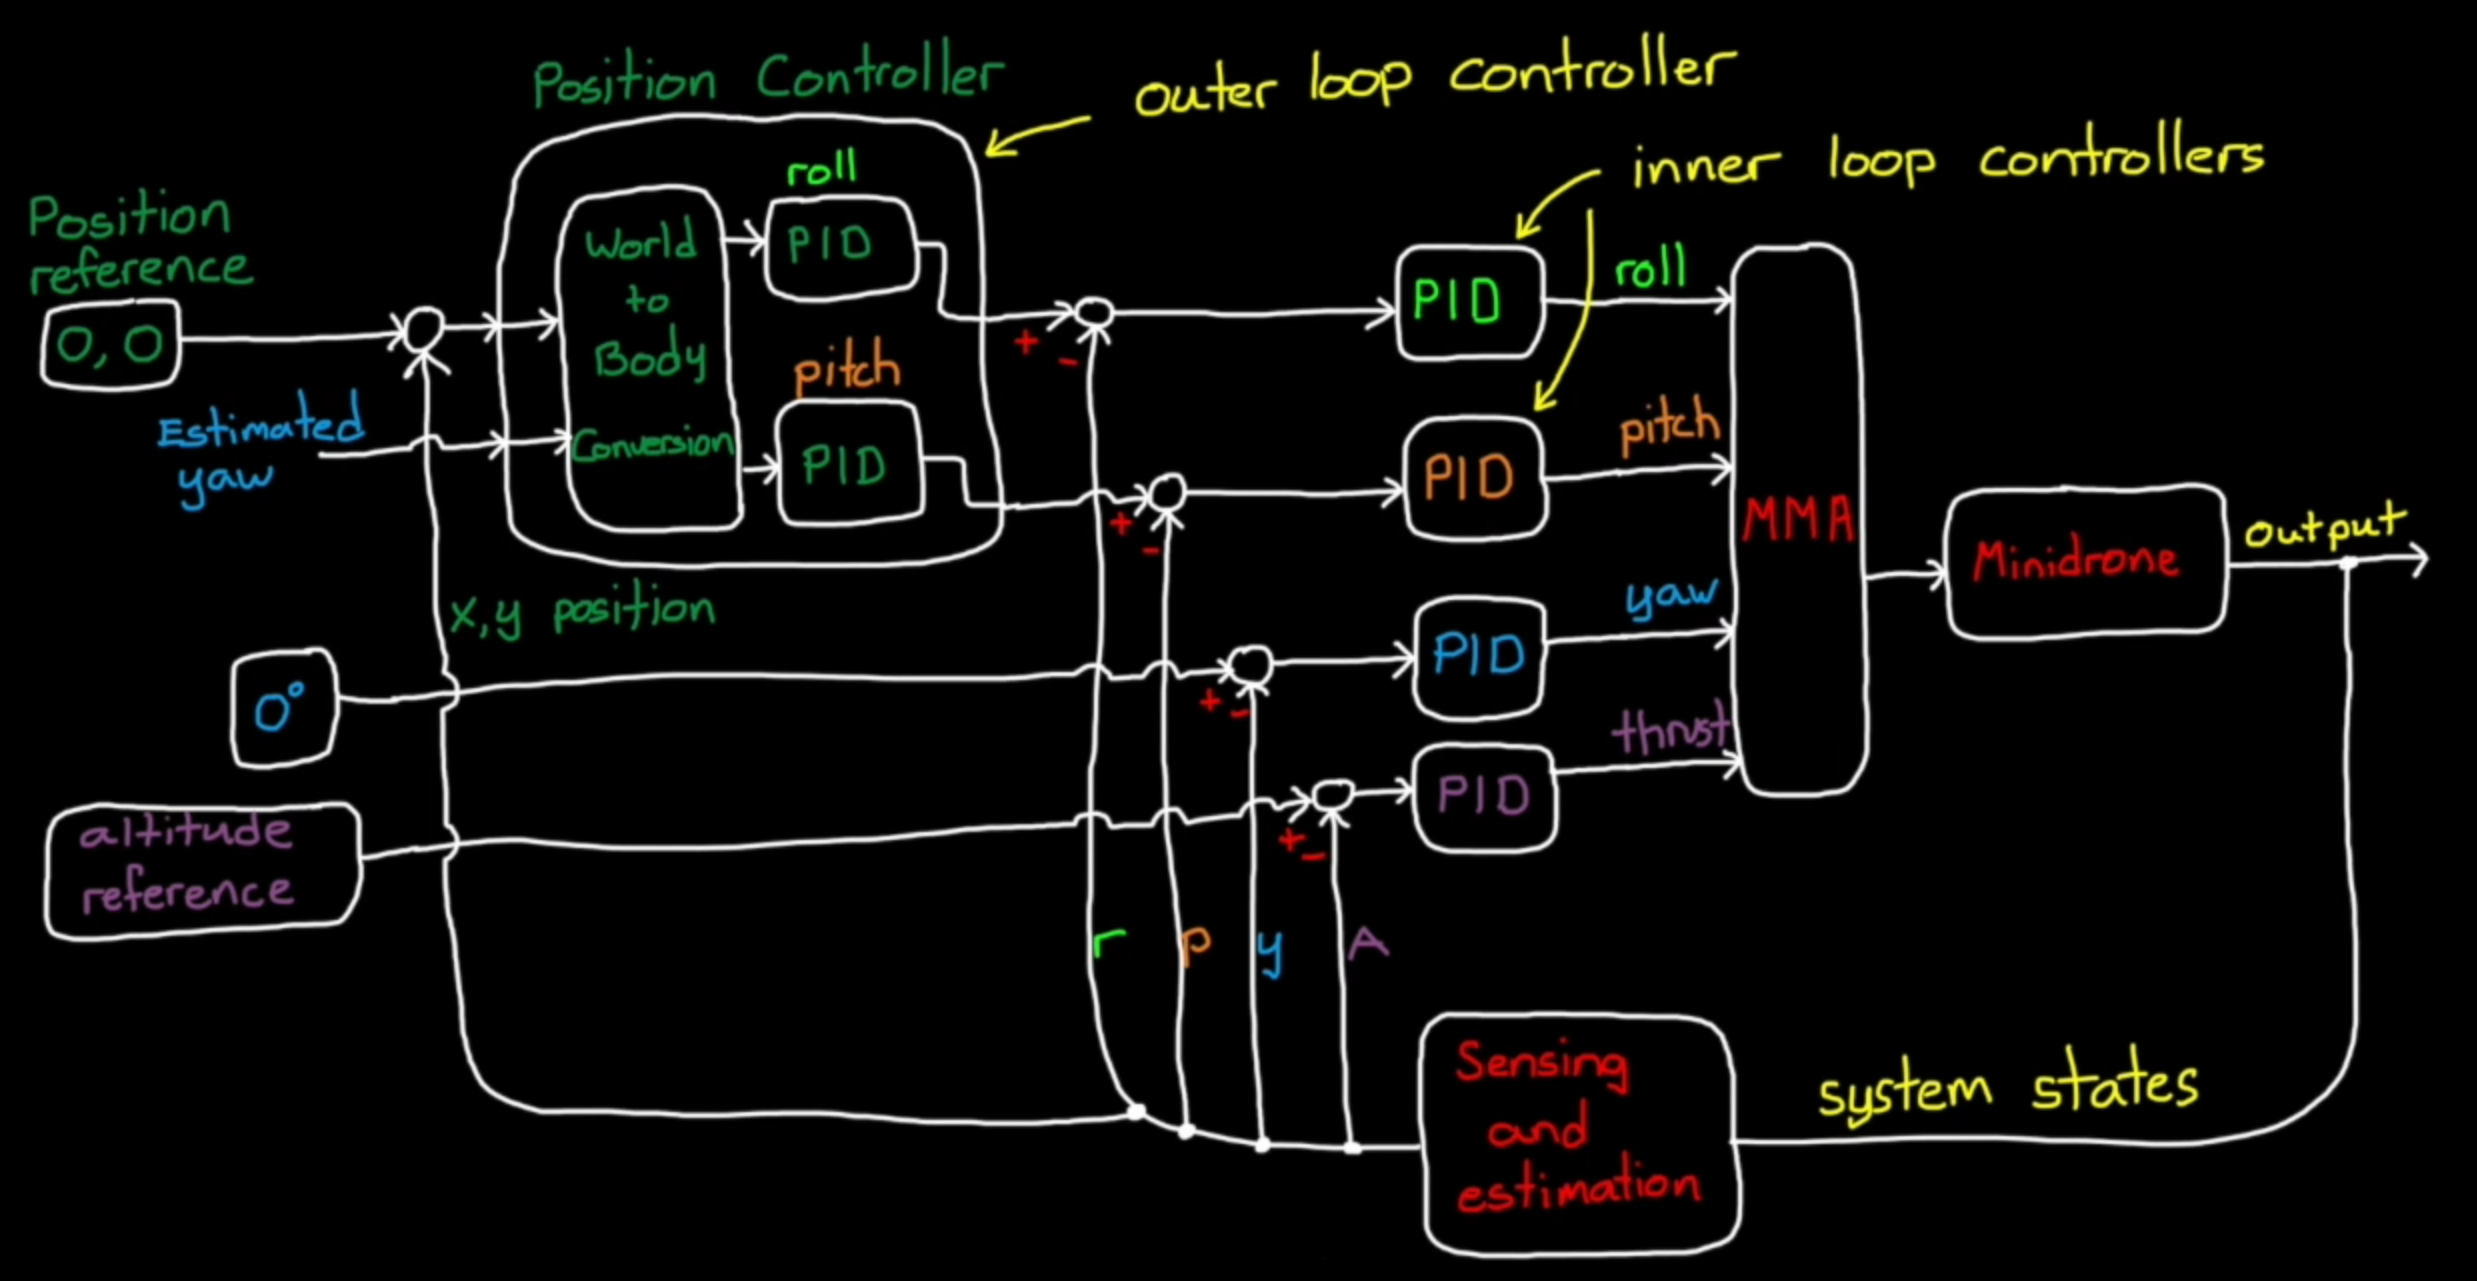 Position Controller
outer loop controller
inner loop controllers
Position
reference
0, 0
Estimated
yaw
World
to
Body
Conversion
roll
PID
pitch
PID
x, y position
+
-
+
-
+
-
+
-
PID
roll
PID
pitch
PID
yaw
PID
thrust
MMA
Minidrone
output
0°
altitude
reference
r
p
y
A
Sensing
and
estimation
system states